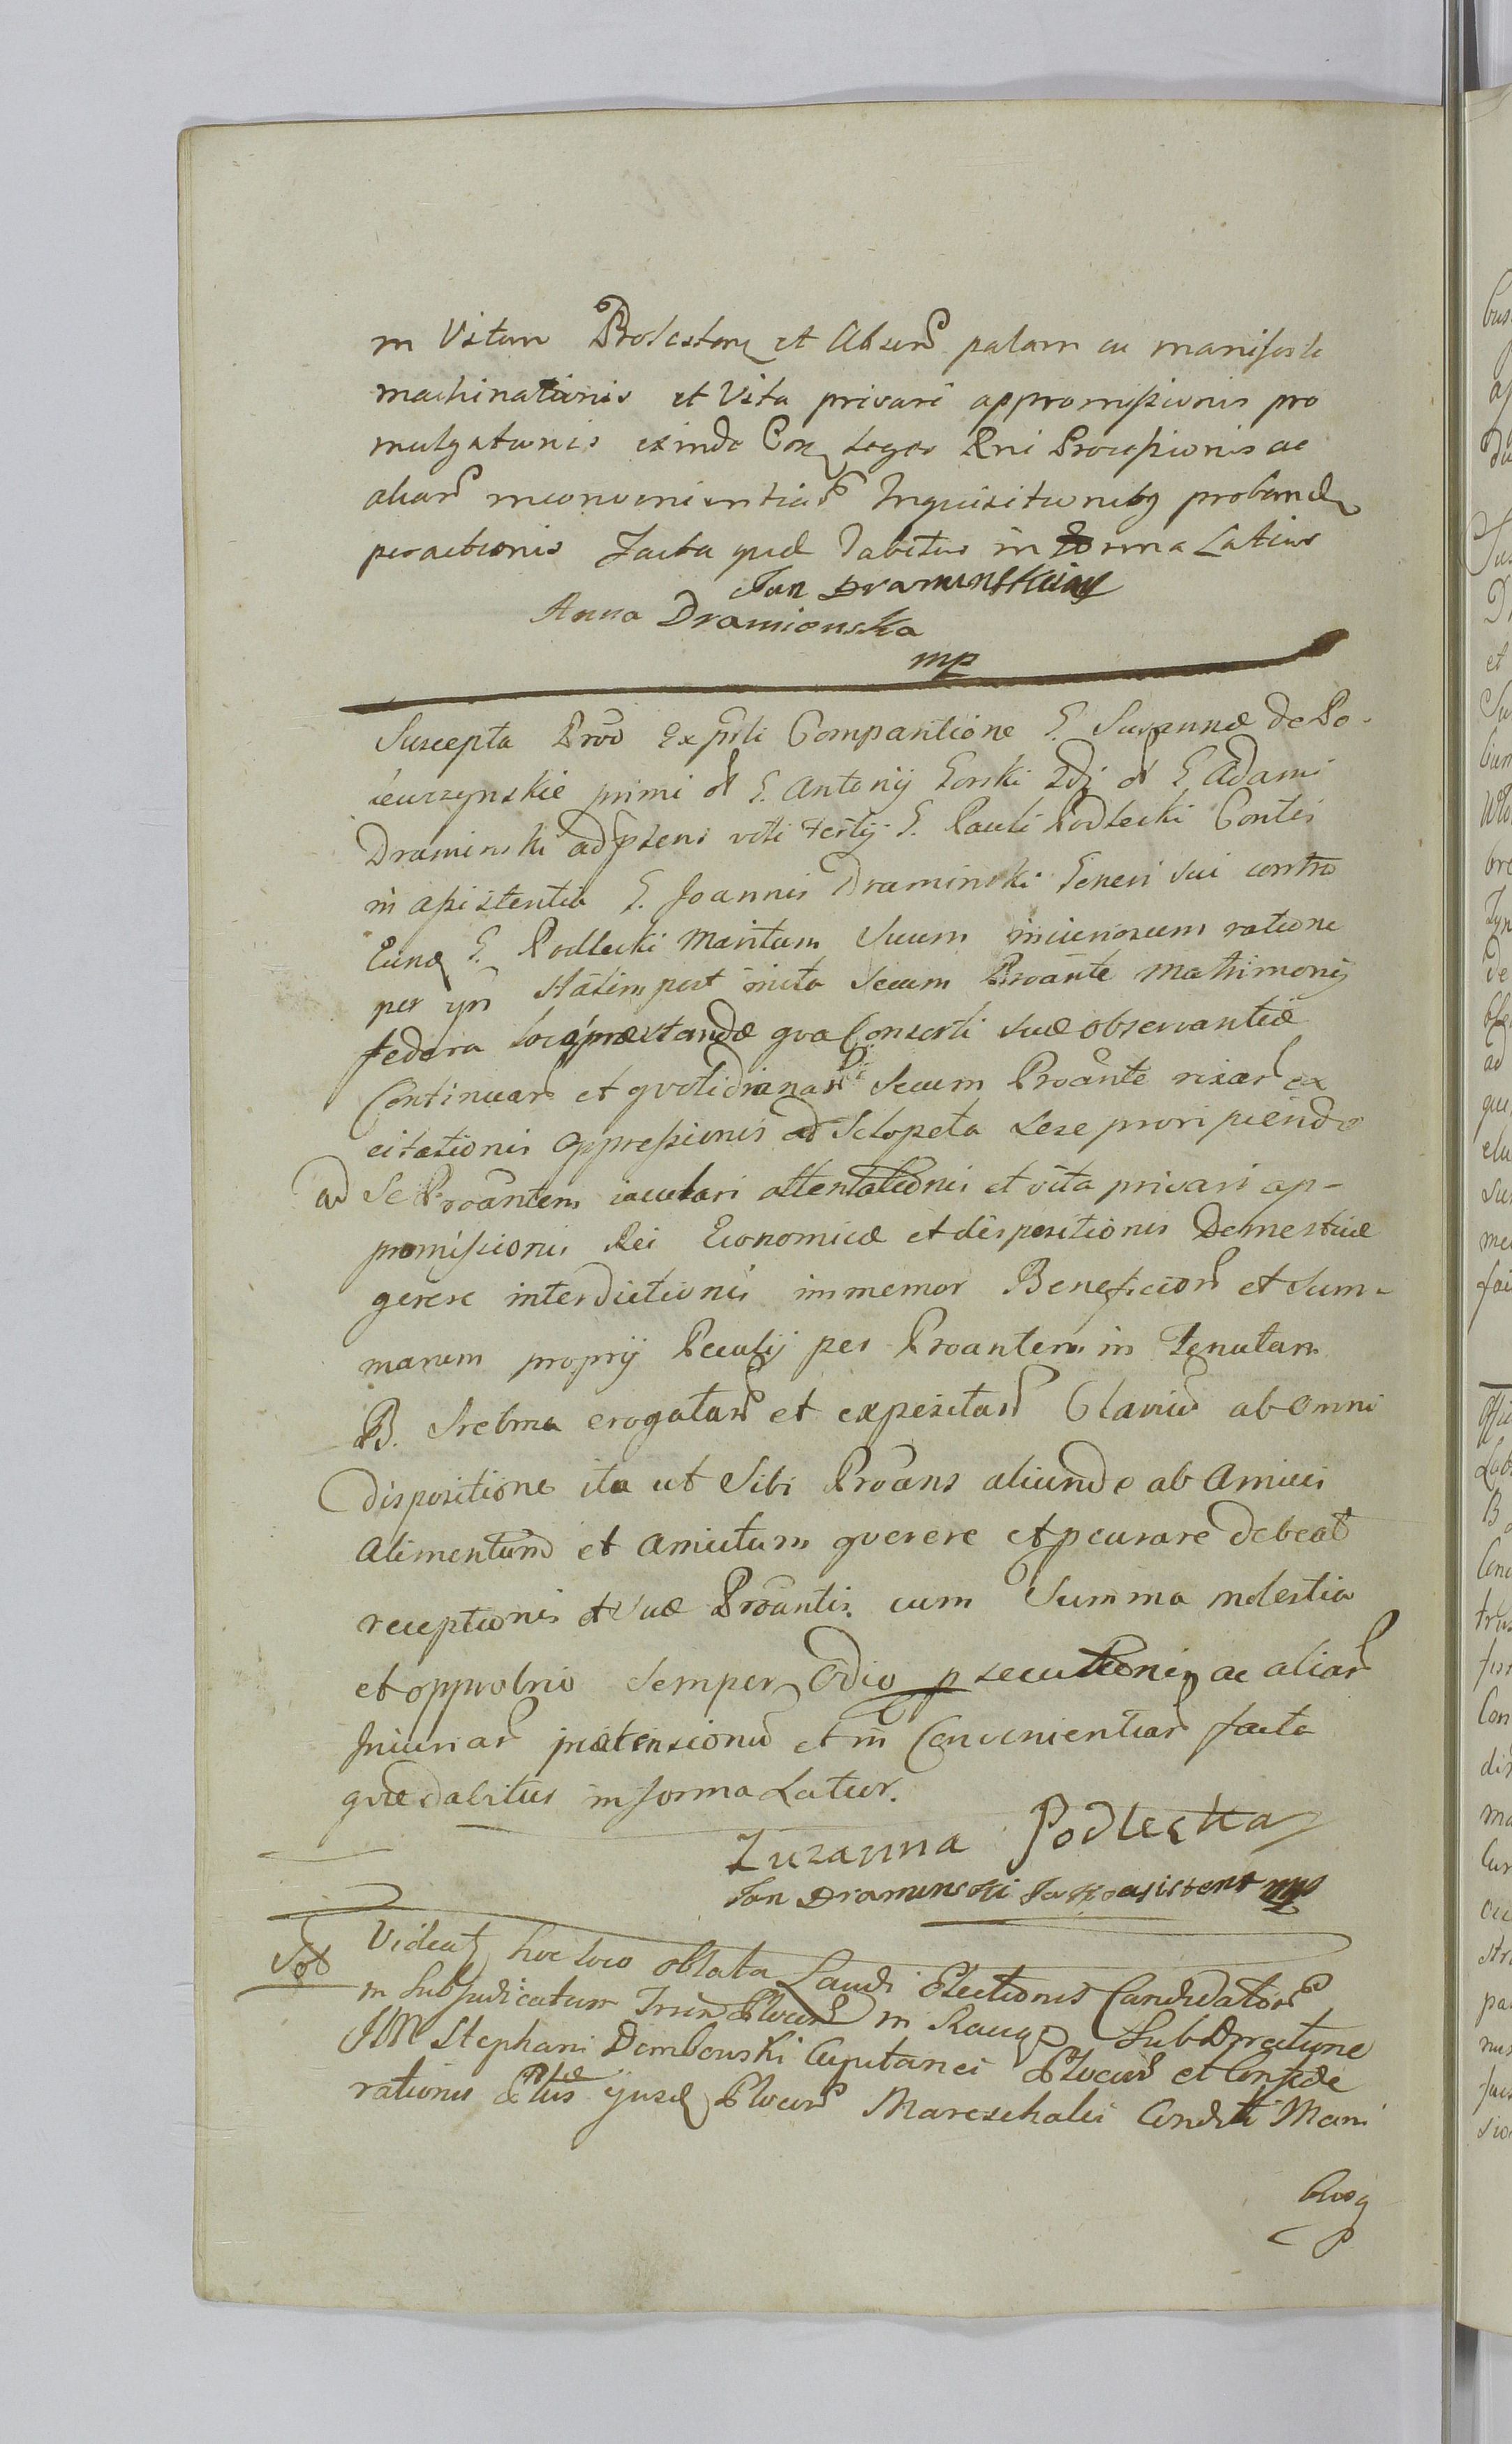 in Vitam Protestan et Absen palam ac manifeste
machinationis et Vita privari appromissionis pro
mulgationis exinde Con Leges Rni Processionis ac
aliar inconvenientiar Inquisitionibq proband
peractionis Facta qud dabitur in Forma Latius
Jan Draminski mp
Anna Dramionska
mp
Suscepta Prōō Ex psti Comparitione G. Susannæ de Po-
ieurzynskie primi et G. Antonij Gorski 2dj et G Adami
Draminski ad psens voti tertij G. Pauli Podlecki Contis
in assistentia G. Joannis Draminski Generi sui contra
Eund G. Podlecki Maritum Suum iniuriosum ratione
per ipm statim post inita Secum Proānte Matrimonij
federa loco præstandæ qva Consorti suæ observantiæ
Continuar et qvotidianar Secum Proānte rixar ex
citationis oppressionis ad Sclopeta Sese proripiendo
ad Se Proāntem iaculari attentationis et vita privari ap-
promissionis Rei Economicæ et dispositionis Domesticæ
gerere interdictionis immemor Beneficior et Sum-
marum proprij Peculij per Proantem in Tenutam
B. Srebrna erogatar et expositar Clavium ab omni
dispositione ita ut Sibi Proāns aliunde ab Amicis
Alimentum et Amictum qverere et pcurare debeat
receptionis et suæ Proāntis cum Summa molestia
et opprobrio Semper Odio psecutionis ac aliar
Iniuriar prætensionū et in Convenientiar facta
quæ dabitur in forma Latior.
Zuzanna Podlecka
Jan Draminski Jako asistent mp
Not
Videat hoc loco oblata Laudi Electionis Candidator
in Subjudicatum Trrn Plocen in Raciąz Sub Directione
JM Stephani Dembowski Capitanei Plocen et Confœde
rationis Pltus ejusd Plocen Mareschalci Conditi Mani
busq